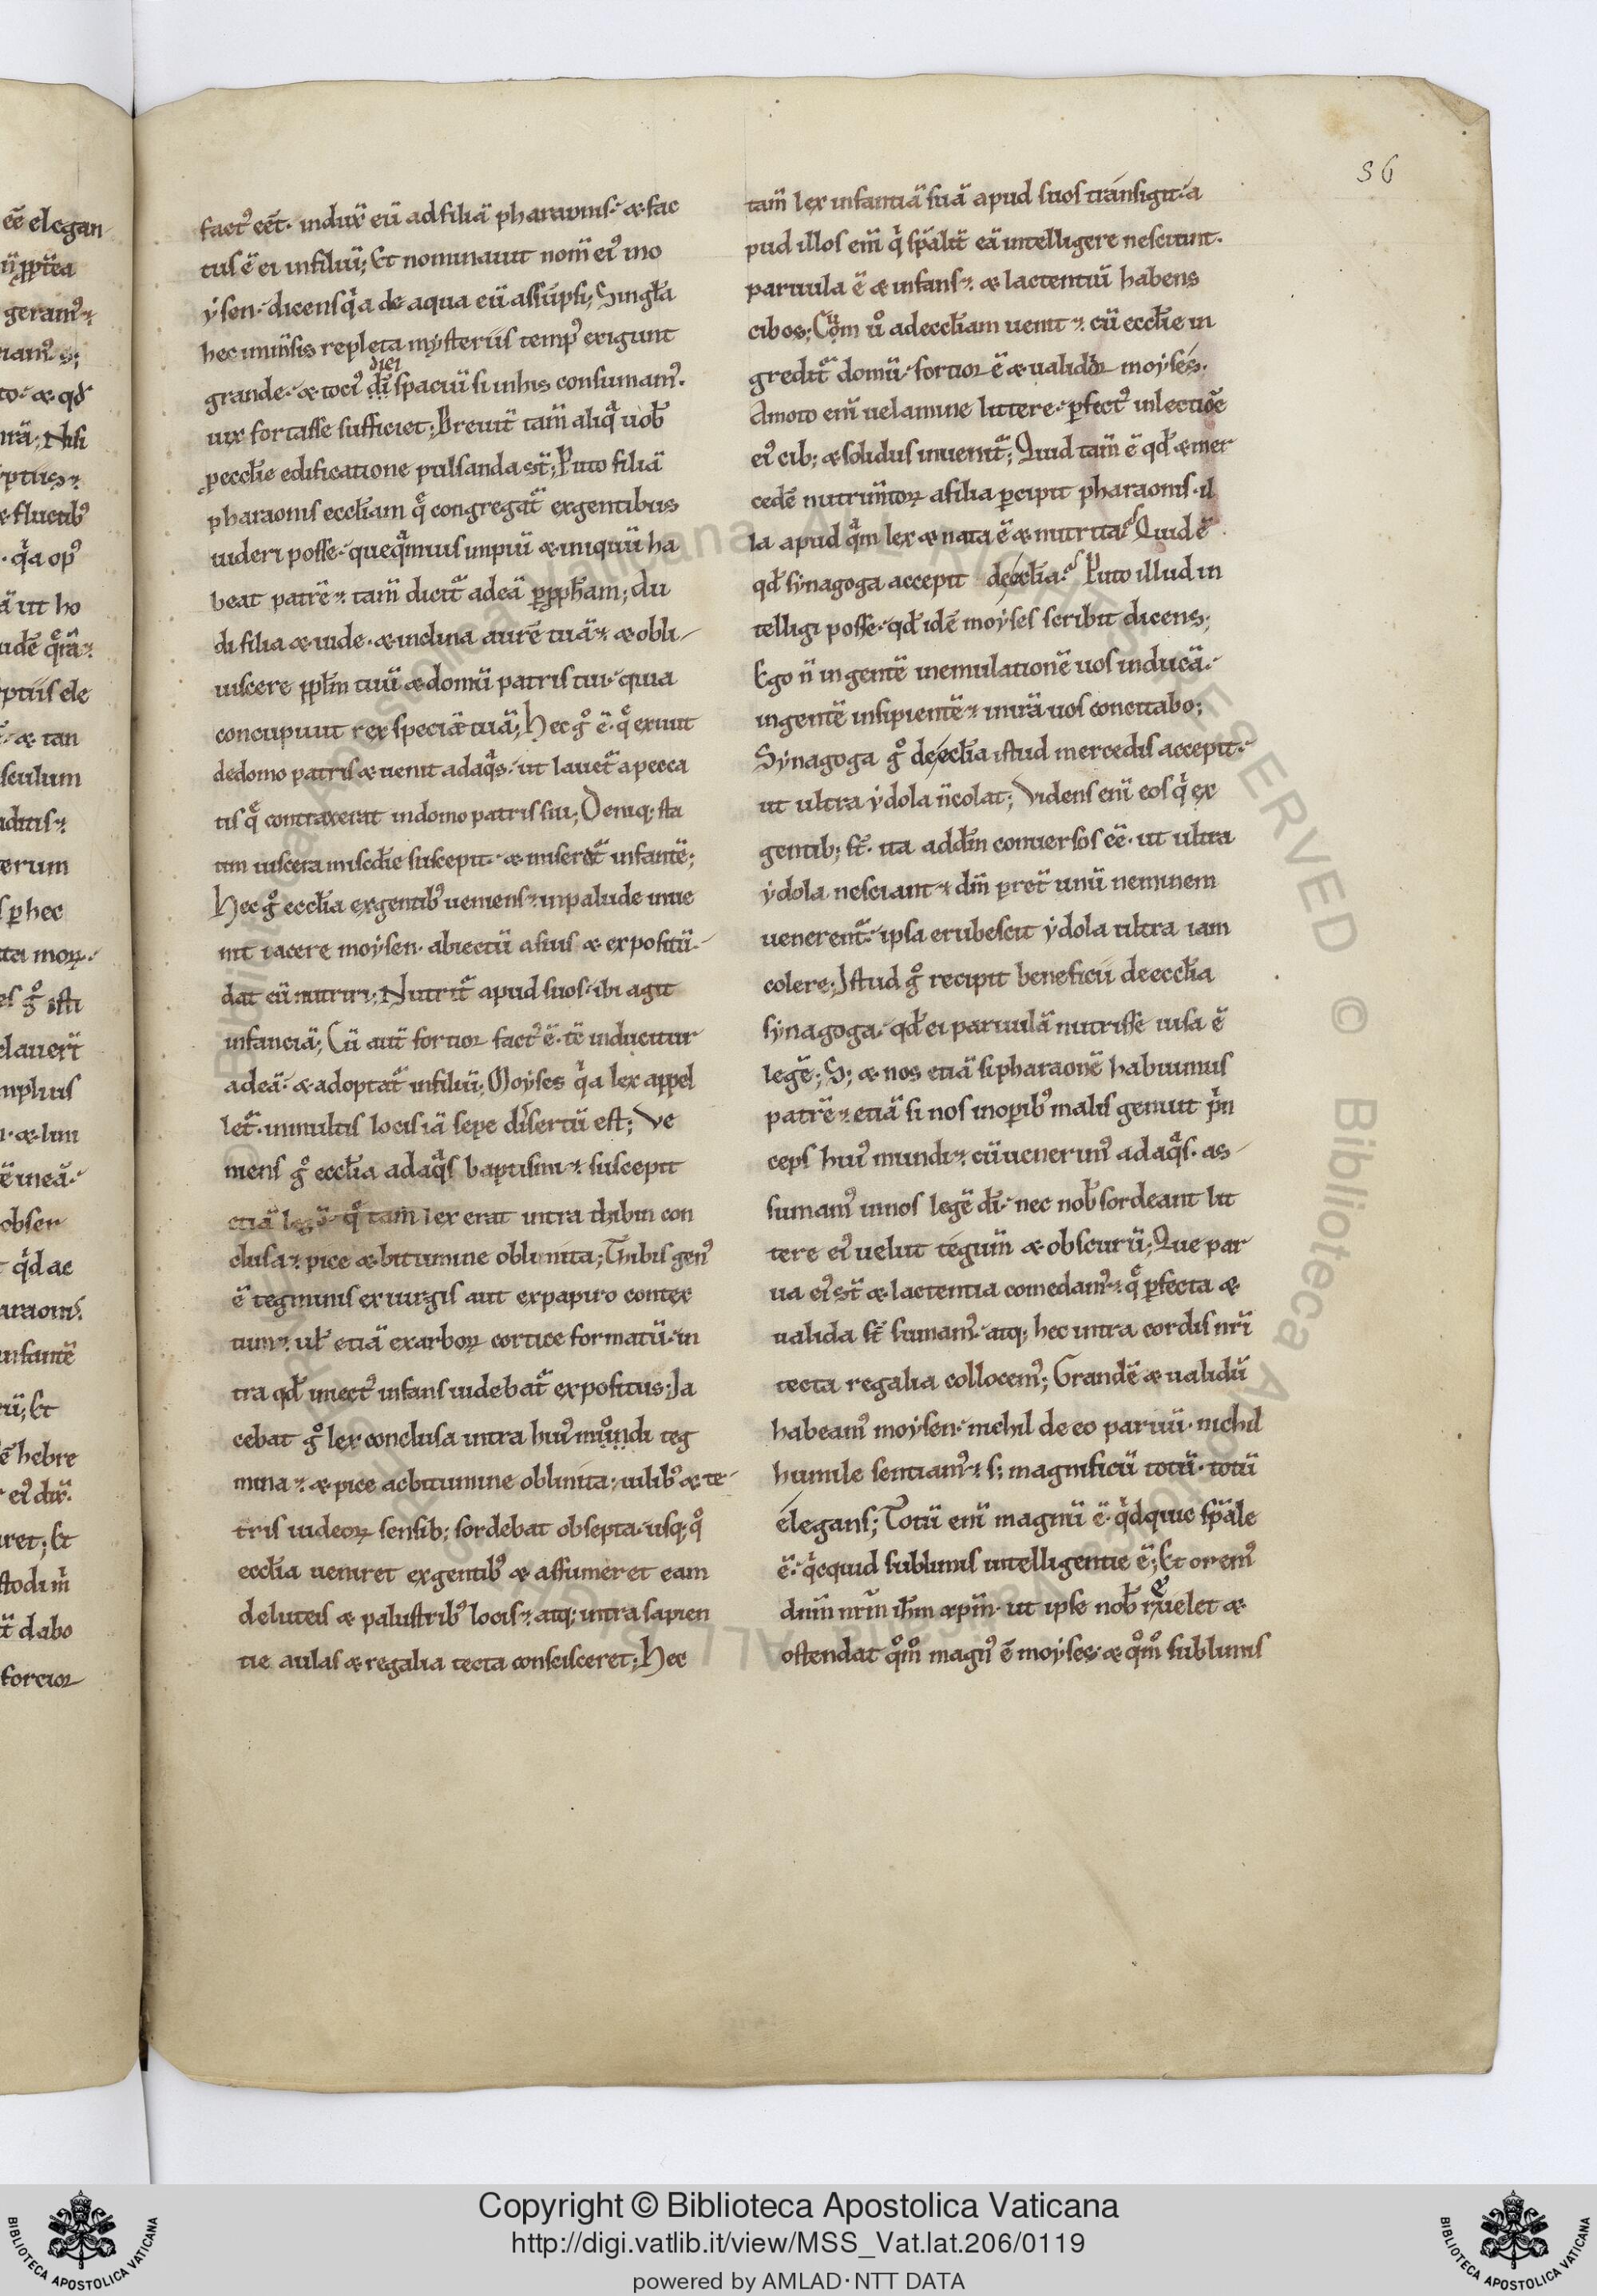 ee͂ elegan
n̄ ꝓpt̄ea
geram᷒
iam᷒ s;
to. & qd̵
nrā; Nisi
yptus
& fluctib᷒
. qͥa op᷒
ā ut ho
udē
ptiis ele
& tan
sculum
aduis
erum
s p̱ hec
ita moꝝ.
es gͦ isti
elauerī
mplius
. & lim
ē ineā.
obser
qͥd ac
araonis
infantē
ū; Et
ē hebre
ei᷒ dix̄.
ret; Et
stodi m̄
t̄ dabo
forcior
36
fact᷒ eēt. indux̄ eū ad filiā pharaonis. & fac
tus ē ei in filiū; Et nominauit nom̄ ei᷒ mo
ysen. dicens qͥa de aqua eū assūpsi; Singl̄a
hec inm̄sis repleta mysteriis temp᷒ exigunt
diei
grande. & toci᷒ dī spaciū si in his consumam᷒.
uix fortasse sufficiet; Breuit̄ tam̄ aliqͣ uob̄
p̱ eccl̄ie edificatione pulsanda st̄; Puto filiā
pharaonis eccl̄iam q̄ congregat᷑ ex gentibus
uideri posse. que qͣmuis impiū & iniquū ha
beat patrē. tam̄ dicit᷑ ad eā ꝑ ꝓph̄am; Au
di filia & uide. & inclina aurē tuā. & obli
uiscere ppl̄m tuū & domū patris tui. quia
concupiuit rex speciē tuā; Hec gͦ ē. q̄ exiuit
de domo patris & uenit ad aqͣs. ut lauet᷑ a pecca
tis q̄ contraxerat in domo patris sui; Deniq; sta
tim uiscera miscd̄ie suscepit. & miseret᷑ infantē;
Hec gͦ eccl̄ia ex gentib᷒ ueniens in palude inue
nit iacere moysen. abiectū a suis & expositū.
dat eū nutriri; Nutrit᷑ apud suos. ibi agit
infanciā; Cū aut̄ fortior fact᷒ ē. tē inducitur
ad eā. & adoptat᷑ in filiū; Moyses qͥa lex appel
let᷑. in multis locis iā sepe disertū est; Ve
niens gͦ eccl̄ia ad aqͣs baptismi. suscepit
etiā legē. q̄ tam̄ lex erat intra thibin con
clusa. pice & bitumine oblinita; Thibis gen᷒
ē tegminis ex uirgis aut ex papiro contex
tum. ul̄ etiā ex arboꝝ cortice formatū. in
tra qd̵ iniect᷒ infans uidebat᷑ expositus; Ja
cebat gͦ lex conclusa intra hui᷒ mundi teg
mina. & pice ac bitumine oblinita; uilib᷒ & te
tris iudeoꝝ sensib; sordebat obsepta. usq; qͦ
eccl̄ia ueniret ex gentib᷒ & assumeret eam
de luteis & palustrib᷒ locis. atq; intra sapien
tie aulas & regalia tecta conscisceret; Hec
tam̄ lex infantiā suā apud suos transigit. a
pud illos eni̅ qͥ sp̄alit̄ eā intelligere nesciunt.
paruula ē & infans. & lactentiū habens
cibos; Cum uͦ ad eccl̄iam uenit. cū eccl̄ie in
gredit᷑ domū. fortior ē & ualidior moyses.
Amoto eni̅ uelamine littere. p̱fect᷒ in lectiōe
ei᷒ cib; & solidus inuenit᷑; Quid tam̄ ē qd̵ & mer
cedē nutrim̄toꝝ a filia p̱cipit pharaonis. il
la apud qͣm lex & nata ē & nutrita? Quid ē
qd̵ synagoga accepit de eccl̄ia? Puto illud in
telligi posse. qd̵ idē moyses scribit dicens;
Ego n̄ in gentē in emulationē uos inducā.
in gentē insipientē. in irā uos concitabo;
Synagoga gͦ de eccl̄ia istud mercedis accepit.
ut ultra ydola n̄ colat; Videns eni̅ eos qͥ ex
gentib; st̄. ita ad dm̄ conuersos eē. ut ultra
ydola nesciant. dm̄ p̱ret̄ unū neminem
uenerent᷑. ipsa erubescit ydola ultra iam
colere; Istud gͦ recipit beneficiū de eccl̄ia
synagoga. qd̵ ei paruulā nutrisse uisa ē
legē; S; & nos etiā si pharaonē habuimus
patrē. etiā si nos in op̱ib᷒ malis genuit pͥn
ceps hui᷒ mundi. cū uenerim᷒ ad aqͣs. as
sumam᷒ in nos legē dī. nec nob̄ sordeant lit
tere ei᷒ uelut tegum̄ & obscurū; Que par
ua ei᷒ st̄ & lactentia comedam᷒. q̄ p̱fecta &
ualida st̄ sumam᷒. atq; hec intra cordis nr̄i
tecta regalia collocem᷒; Grandē & ualidū
habeam᷒ moysen. nichil de eo paruū. nichil
humile sentiam᷒. s; magnificū totū. totū
elegans; Totū eni̅ magnū ē. qͥdquic sp̄ale
ē. qͥcquid sublimis intelligentie ē; Et orem᷒
dn̄m nr̄m ih̄m xp̄m. ut ipse nob̄ reuelet &
ostendat qͦmͦ magn᷒ ē moyses. & qͦmͦ sublimis
Copyright © Biblioteca Apostolica Vaticana
http://digi.vatlib.it/view/MSS_Vat.lat.206/0119
powered by AMLAD·NTT DATA
BIBLIOTECA APOSTOLICA VATICANA
BIBLIOTECA APOSTOLICA VATICANA